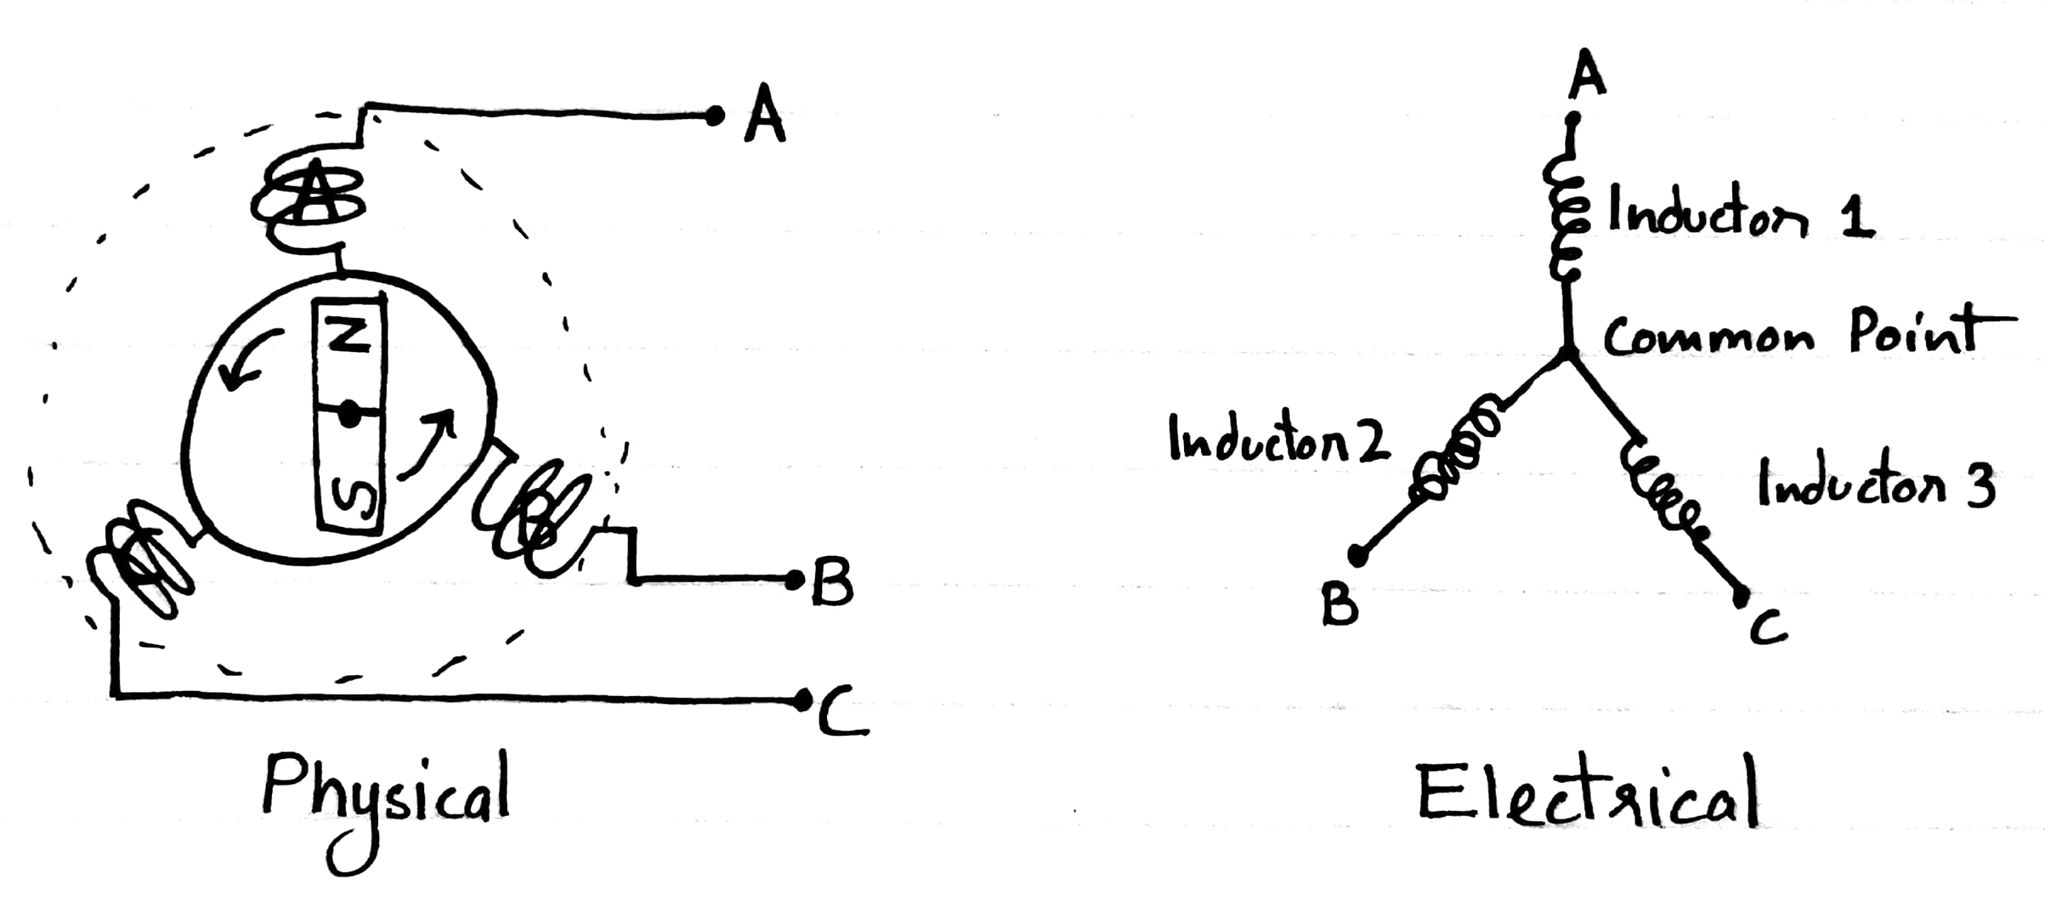 A
A
N
S
B
B
C
Physical
A
Inductor 1
Common Point
Inductor 2
Inductor 3
B
C
Electrical